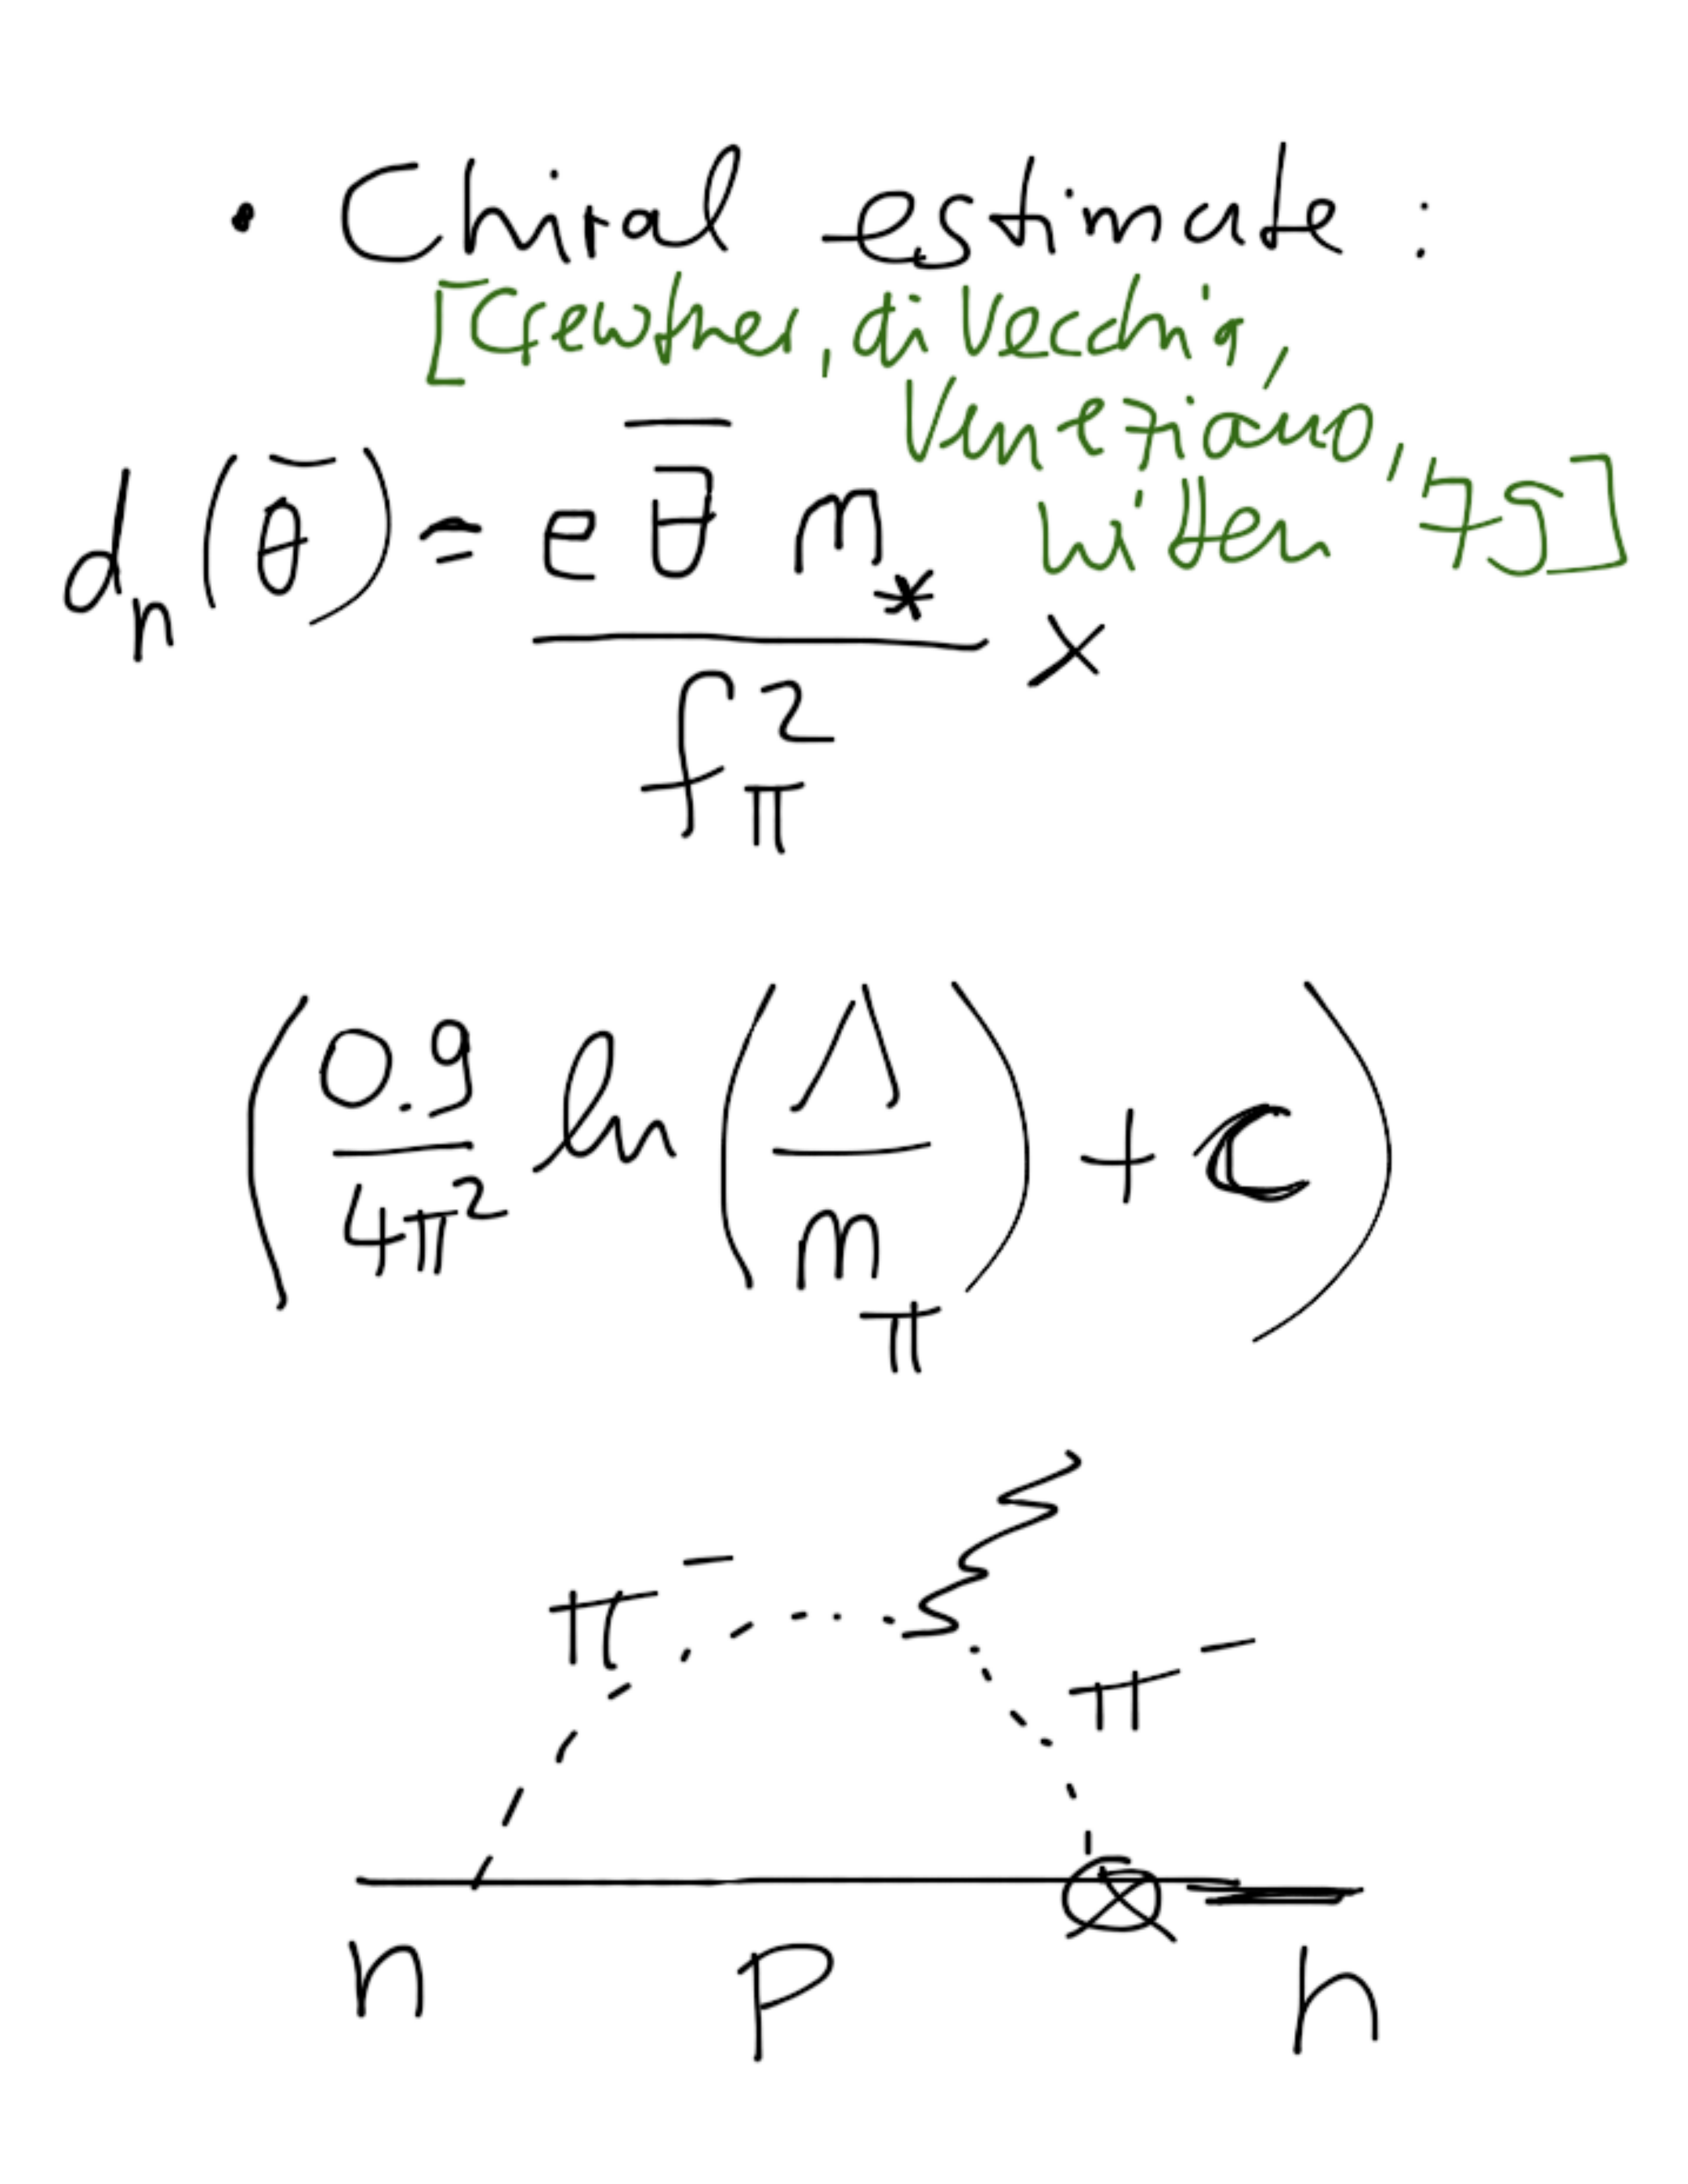 • Chiral estimate :
[Crewther, di Vecchia,
Veneziano,
Witten '79]
d_n(θ̄) = e θ̄ m_* / f_π^2 ×
( 0.9 / 4π^2 ln ( Λ / m_π ) + C )
π^-
π^-
n p n